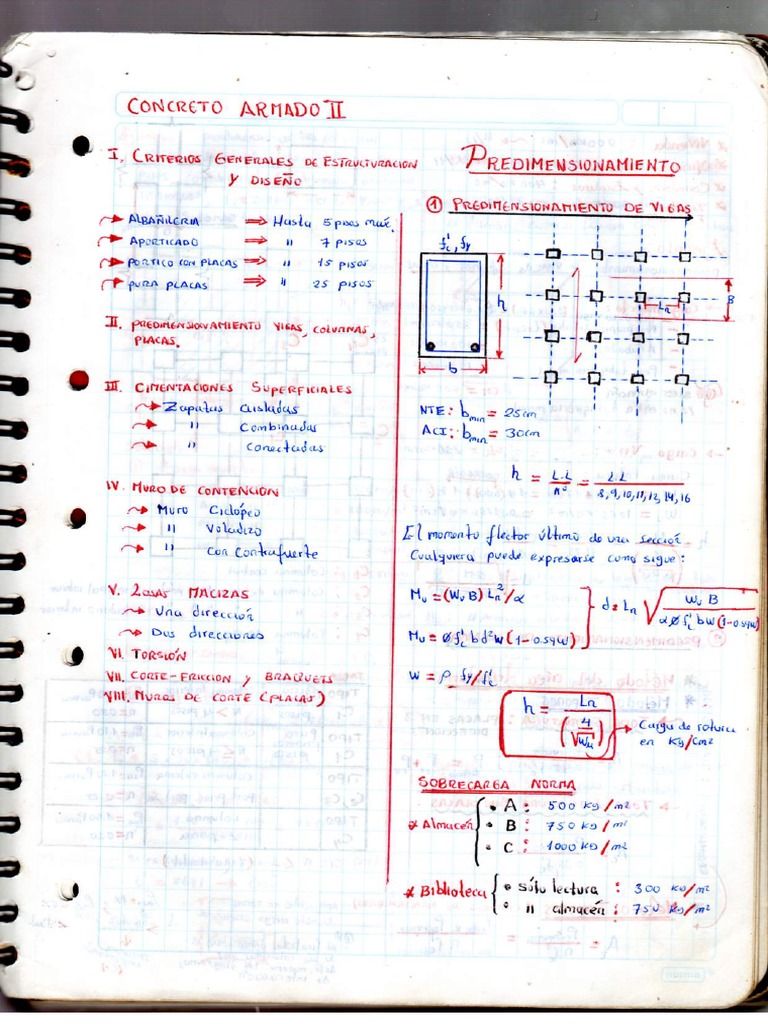 CONCRETO ARMADO II
I. CRITERIOS GENERALES DE ESTRUCTURACION
Y DISEÑO
ALBAÑILERIA ⇒ Hasta 5 pisos max.
APORTICADO ⇒ " 7 pisos
PORTICO CON PLACAS ⇒ " 15 pisos
PURA PLACAS ⇒ " 25 pisos
II. PREDIMENSIONAMIENTO VIGAS, COLUMNAS,
PLACAS.
III. CIMENTACIONES SUPERFICIALES
Zapatas Aisladas
" Combinadas
" Conectadas
IV. MURO DE CONTENCION
Muro Ciclópeo
" Voladizo
" Con Contrafuerte
V. LOSAS MACIZAS
Una dirección
Dos direcciones
VI. TORSIÓN
VII. CORTE-FRICCION Y BRAQUETS
VIII. MUROS DE CORTE (PLACAS)
PREDIMENSIONAMIENTO
① PREDIMENSIONAMIENTO DE VIGAS
f'c, fy
h
b
Ln
B
NTE: bmin = 25cm
ACI: bmin = 30cm
h = L.L / nº = L.L / 8,9,10,11,12,14,16
El momento flector último de una sección
Cualquiera puede expresarse como sigue:
Mu = (Wu B) Ln²/α
d = Ln √(Wu B / αØf'c bw(1-0.59w))
Mu = Øf'c bd²w(1-0.59w)
w = ρ fy/f'c
h = Ln / (4/√Wu)
Carga de rotura
en Kg/cm2
SOBRECARGA NORMA
* Almacén
• A: 500 kg/m2
• B: 750 kg/m2
• C: 1000 kg/m2
* Biblioteca
• sólo lectura : 300 kg/m2
• " almacén : 750 kg/m2